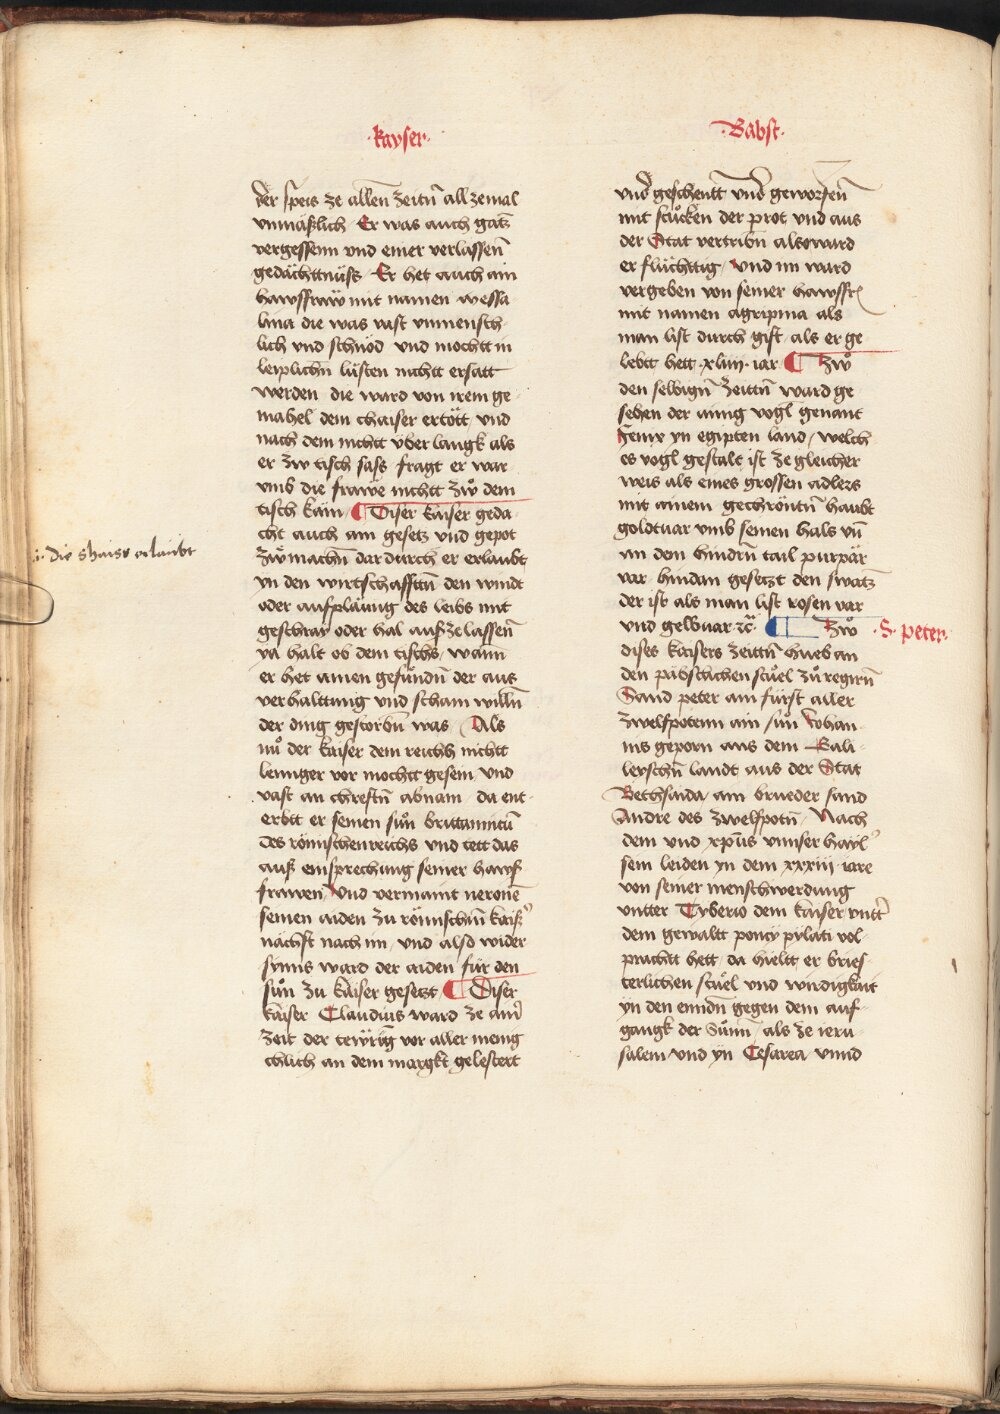 ·kayser·
der speis ze allen zeitn̄ all zemal
vnmäslich Er was auch gātz
vergessenn vnd einer verlassen̄
gedächttnüss Er het auch ain
hawssfraw mit namen messa
lina die was vast vnmensch
lich vnd schnöd vnd mochtt in
leiplichn̄ lüsten nichtt ersatt
werden die ward von irem ge
mahel dem chaiser ertött vnd
nach dem nichtt vber langk als
er zw tisch sass fragt er war
vmb die frawe nichtt zẘ dem
tisch käm ¶ Diser kaiser geda
cht auch ain gesetz vnd gepot
zẘ machn̄ dar durch er erlaubt
yn den wirtschafftn̄ den windt
oder aufpläung des leibs mit
geschrai oder hal aufzelassen̄
ia halt ob dem tischs wann
er het ainen gefundn̄ der aus
verhalttung vnd scham willn̄
der ding gestorbn̄ was Als
nů der kaiser dem reichs nichtt
lenniger vor mochtt gesein vnd
vast an chrestn̄ abnam da ent
erbtt er seinen sůn brittannicū
des römischenreichs vnd tett das
auß einsprechung seiner hawß
frawen Vnd vermaint neronē
seinen aiden zu römischn̄ kaiß
nächst nach im vnd also wider
synns ward der aiden für den
sůn zu kaiser gesetzt ¶ Diser
kaiser Claudius ward ze ainr̄
zeit der tewrīg vor aller menig
chlich an dem margkt gelestert
ü die shaiss erlaubt
·Babst·
vnd geschentt vnd geworfen̄
mit stůcken der prot vnd aus
der Stat vertribn̄ alsoward
er flüchttig Vnd im ward
vergeben von seiner hawssfr
mit namen agripina als
man list durch gift als er ge
lebtt hett ·xliiij· iar ¶ Zẘ
den selbign̄ zeittn̄ ward ge
sehen der ainig vogl genant
fenix yn egipten land welch
es vogl gestalt ist ze gleicher
weis als eines grossen adlers
mit ainem gechröntn̄ haubt
goltuar vmb seinen hals vn̄
an dem hindrn̄ tail purpär
var hindan gesetzt den swātz
der ist als man list rosen var
vnd gelbuar ꝛc ¶ Zẘ
·S· peter·
dises kaisers zeittn̄ hueb an
den pabstlichen stůel zů regirn̄
Sand peter ain fürst aller
zwelfpotenn ain sůn Johan
nis geporn aus dem Gali
leyschn̄ landt aus der Stat
Bethsaida ain brueder sand
Andre des zwelfpotn̄ Nach
dem vnd xp̄us vnnser hayl
sein leiden yn dem xxxiii iare
von seiner menschwerdung
vntter Tyberio dem kaiser vntt
dem gewaltt poncy pylati vol
prachtt hett da hieltt er bries
terlichen stůel vnd wirdigkait
yn den enndn̄ gegen dem auf
gangk der Sůnn̄ als ze ieru
salem vnd yn Cesarea vnnd